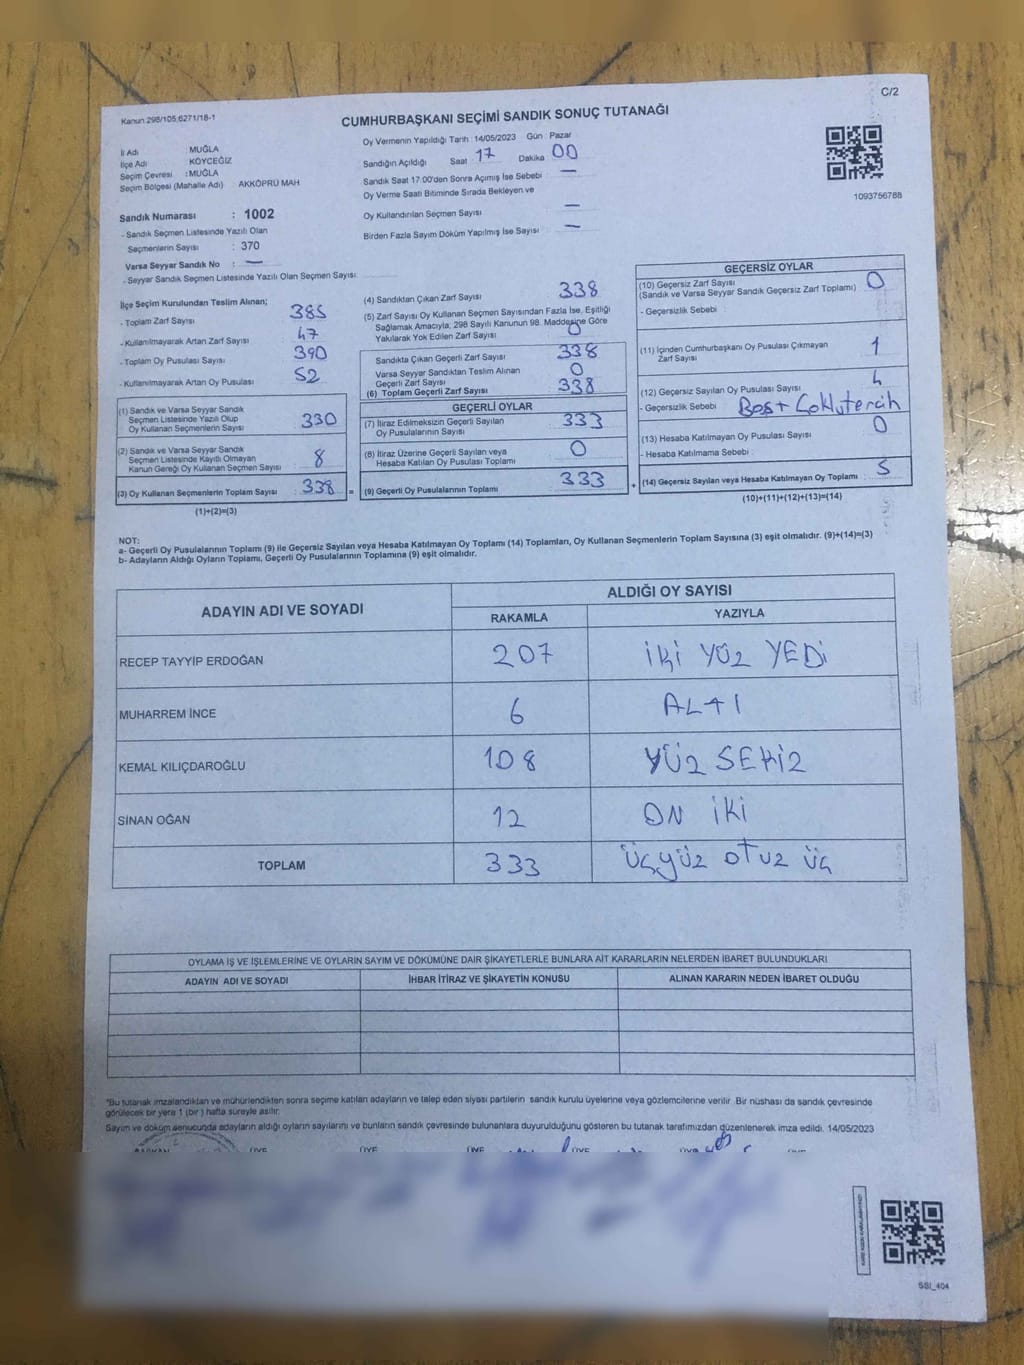 C/2
Kanun 298/105,6271/18-1
CUMHURBAŞKANI SEÇİMİ SANDIK SONUÇ TUTANAĞI
İl Adı MUĞLA
İlçe Adı KÖYCEĞİZ
Seçim Çevresi : MUĞLA
Seçim Bölgesi (Mahalle Adı) AKKÖPRÜ MAH
Oy Vermenin Yapıldığı Tarih : 14/05/2023 Gün : Pazar
Sandığın Açıldığı Saat 17 Dakika 00
Sandık Saat 17:00'den Sonra Açımış İse Sebebi —
Oy Verme Saati Bitiminde Sırada Bekleyen ve
Oy Kullandırılan Seçmen Sayısı —
Birden Fazla Sayım Döküm Yapılmış İse Sayısı —
1093756788
Sandık Numarası : 1002
- Sandık Seçmen Listesinde Yazılı Olan
Seçmenlerin Sayısı : 370
Varsa Seyyar Sandık No : —
- Seyyar Sandık Seçmen Listesinde Yazılı Olan Seçmen Sayısı
İlçe Seçim Kurulundan Teslim Alınan;
- Toplam Zarf Sayısı 385
- Kullanılmayarak Artan Zarf Sayısı 47
- Toplam Oy Pusulası Sayısı 390
- Kullanılmayarak Artan Oy Pusulası 52
(1) Sandık ve Varsa Seyyar Sandık
Seçmen Listesinde Yazılı Olup
Oy Kullanan Seçmenlerin Sayısı 330
(2) Sandık ve Varsa Seyyar Sandık
Seçmen Listesinde Kayıtlı Olmayan
Kanun Gereği Oy Kullanan Seçmen Sayısı 8
(3) Oy Kullanan Seçmenlerin Toplam Sayısı 338 =
(1)+(2)=(3)
(4) Sandıktan Çıkan Zarf Sayısı 338
(5) Zarf Sayısı Oy Kullanan Seçmen Sayısından Fazla İse, Eşitliği
Sağlamak Amacıyla; 298 Sayılı Kanunun 98. Maddesine Göre
Yakılarak Yok Edilen Zarf Sayısı 0
Sandıkta Çıkan Geçerli Zarf Sayısı 338
Varsa Seyyar Sandıktan Teslim Alınan
Geçerli Zarf Sayısı 0
(6) Toplam Geçerli Zarf Sayısı 338
GEÇERLİ OYLAR
(7) İtiraz Edilmeksizin Geçerli Sayılan
Oy Pusulalarının Sayısı 333
(8) İtiraz Üzerine Geçerli Sayılan veya
Hesaba Katılan Oy Pusulası Toplamı 0
(9) Geçerli Oy Pusulalarının Toplamı 333 +
GEÇERSİZ OYLAR
(10) Geçersiz Zarf Sayısı
(Sandık ve Varsa Seyyar Sandık Geçersiz Zarf Toplamı) 0
- Geçersizlik Sebebi :
(11) İçinden Cumhurbaşkanı Oy Pusulası Çıkmayan
Zarf Sayısı 1
(12) Geçersiz Sayılan Oy Pusulası Sayısı 4
- Geçersizlik Sebebi Boş+Çoklutercih
(13) Hesaba Katılmayan Oy Pusulası Sayısı 0
- Hesaba Katılmama Sebebi :
(14) Geçersiz Sayılan veya Hesaba Katılmayan Oy Toplamı 5
(10)+(11)+(12)+(13)=(14)
NOT:
a- Geçerli Oy Pusulalarının Toplamı (9) ile Geçersiz Sayılan veya Hesaba Katılmayan Oy Toplamı (14) Toplamları, Oy Kullanan Seçmenlerin Toplam Sayısına (3) eşit olmalıdır. (9)+(14)=(3)
b- Adayların Aldığı Oyların Toplamı, Geçerli Oy Pusulalarının Toplamına (9) eşit olmalıdır.
ADAYIN ADI VE SOYADI ALDIĞI OY SAYISI
RAKAMLA YAZIYLA
RECEP TAYYİP ERDOĞAN 207 İKİ YÜZ YEDİ
MUHARREM İNCE 6 ALTI
KEMAL KILIÇDAROĞLU 108 YÜZ SEKİZ
SİNAN OĞAN 12 ON İKİ
TOPLAM 333 üçyüz otuz üç
OYLAMA İŞ VE İŞLEMLERİNE VE OYLARIN SAYIM VE DÖKÜMÜNE DAİR ŞİKAYETLERLE BUNLARA AİT KARARLARIN NELERDEN İBARET BULUNDUKLARI
ADAYIN ADI VE SOYADI İHBAR İTİRAZ VE ŞİKAYETİN KONUSU ALINAN KARARIN NEDEN İBARET OLDUĞU
*Bu tutanak imzalandıktan ve mühürlendikten sonra seçime katılan adayların ve talep eden siyasi partilerin sandık kurulu üyelerine veya gözlemcilerine verilir. Bir nüshası da sandık çevresinde
görülecek bir yere 1 (bir ) hafta süreyle asılır.
Sayım ve döküm sonucunda adayların aldığı oyların sayılarını ve bunların sandık çevresinde bulunanlara duyurulduğunu gösteren bu tutanak tarafımızdan düzenlenerek imza edildi. 14/05/2023
BAŞKAN ÜYE ÜYE ÜYE ÜYE ÜYE ÜYE
SSI_404